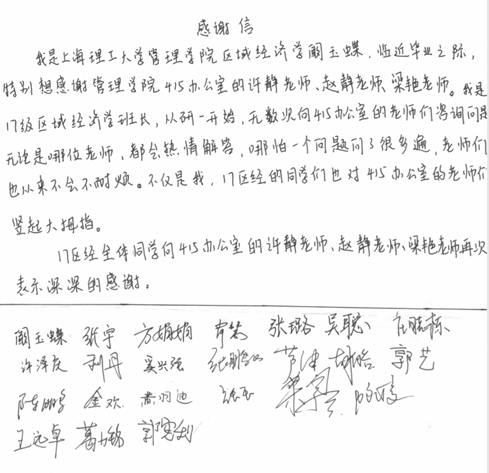 感谢信
我是上海理工大学管理学院区域经济学阚玉蝶,临近毕业之际,
特别想感谢管理学院415办公室的许静老师、赵静老师、梁艳老师。我是
17级区域经济学班长,从研一开始,无数次向415办公室的老师们咨询问题
无论是哪位老师,都会热情解答,哪怕一个问题问了很多遍,老师们
也从来不会不耐烦。不仅是我,17区经的同学们也对415办公室的老师们
竖起大拇指。
17区经全体同学向415办公室的许静老师、赵静老师、梁艳老师再次
表示深深的感谢。
阚玉蝶 张宇 方娟娟 张璐 吴聪
许泽庆 刘丹 郭艺
金欢
王远卓